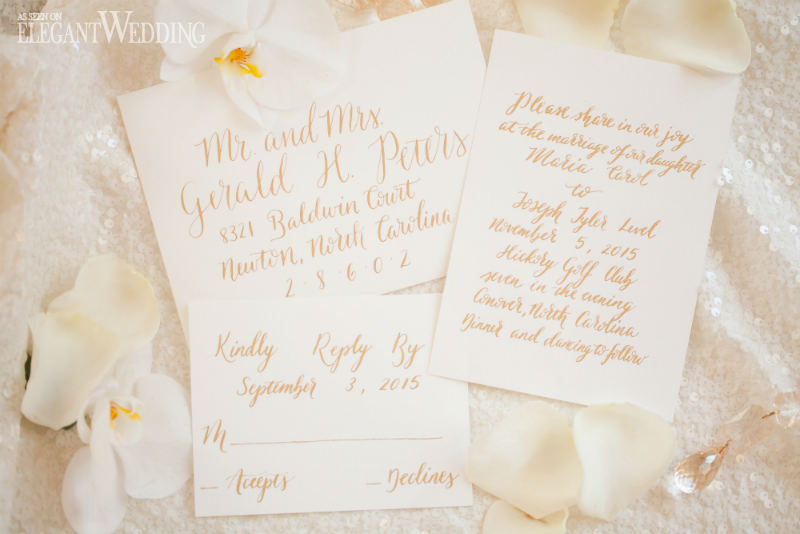 AS SEEN ON
ELEGANTWEDDING
Mr. and Mrs.
Gerald H. Peters
8321 Baldwin Court
Newton, North Carolina
2 · 8 · 6 · 0 · 2
Please share in our joy
at the marriage of our daughter
Maria Carol
to
Joseph Tyler Lund
November 5, 2015
Hickory Golf Club
seven in the evening
Conover, North Carolina
Dinner and dancing to follow
Kindly Reply By
September 3, 2015
M
Accepts Declines